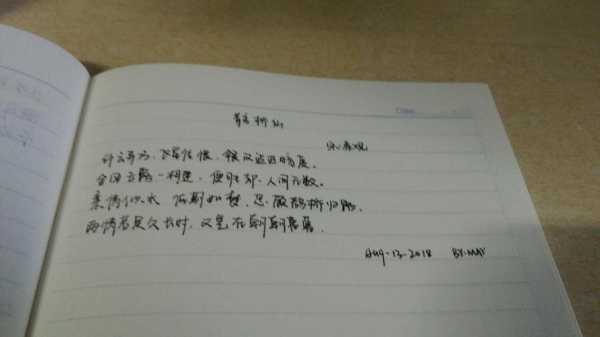 鹊桥仙
秦观
纤云弄巧，飞星传恨，银汉迢迢暗度。
金风玉露一相逢，便胜却，人间无数。
柔情似水 佳期如梦，忍顾鹊桥归路。
两情若是久长时，又岂在朝朝暮暮。
Aug-13-2018 BY.MAY